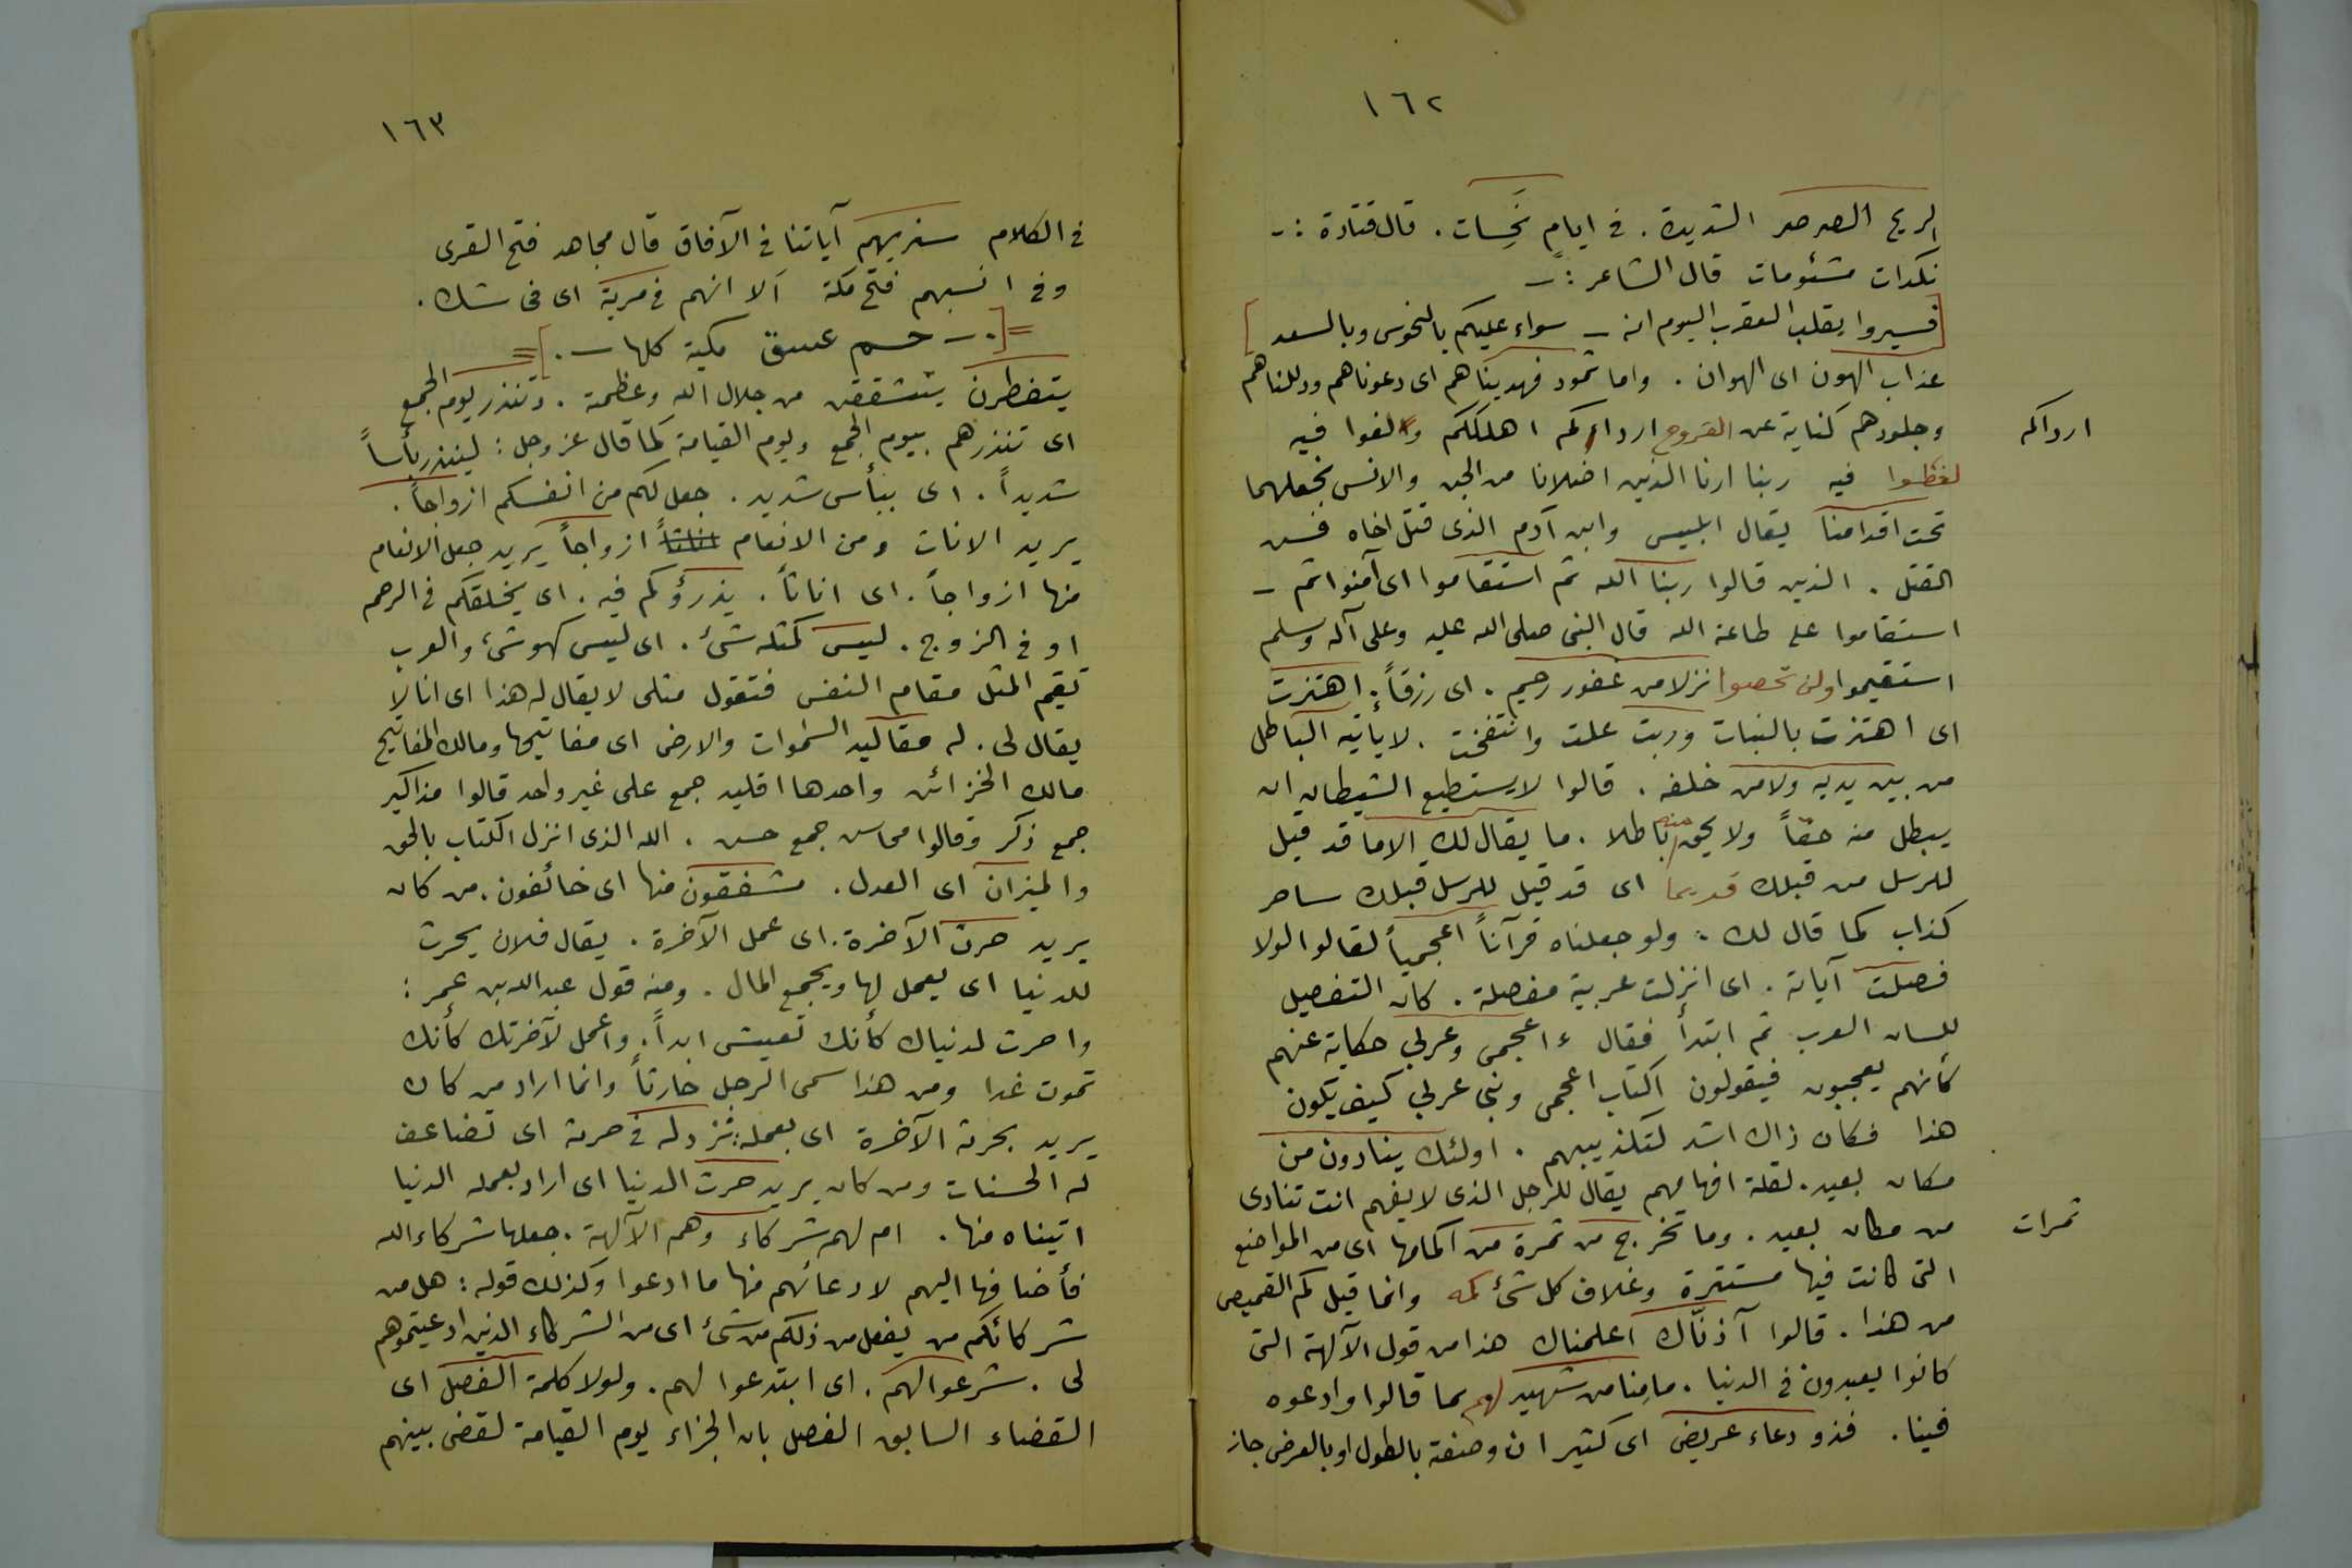 ١٦٢
الريح الصرصر الشديدة . في ايامٍ نَحِسات . قال قتادة :-
نكدات مشئومات قال الشاعر :-
[فسيروا بقلب العقرب اليوم انه - سواء عليكم بالنحوس وبالسعد]
عذاب الهون اى الهوان . واما ثمود فهديناهم اى دعوناهم ودللناهم
وجلودهم كناية عن الفروج ارداكم اهلككم والغوا فيه
ارداكم
لغطوا فيه ربنا ارنا الذين اضلانا من الجن والانس نجعلهما
تحت اقدامنا يقال ابليس وابن آدم الذى قتل اخاه فسن
القتل . الذين قالوا ربنا الله ثم استقاموا اى آمنوا ثم -
استقاموا على طاعة الله قال النبى صلى الله عليه وعلى آله وسلم
استقيموا ولن تحصوا نزلا من غفور رحيم . اى رزقاً . اهتزت
اى اهتزت بالنبات وربت علت وانتفخت . لا يأتيه الباطل
من بين يديه ولا من خلفه . قالوا لا يستطيع الشيطان ان
يبطل منه حقاً ولا يحق منه باطلا . ما يقال لك الا ما قد قيل
للرسل من قبلك قديما اى قد قيل للرسل قبلك ساحر
كذاب كما قال لك . ولو جعلناه قرآناً اعجمياً لقالوا لولا
فصلت آياته . اى انزلت عربية مفصلة . كان التفصيل
للسان العرب ثم ابتدأ فقال ءاعجمى وعربي حكاية عنهم
كأنهم يعجبون فيقولون اكتاب اعجمى ونبى عربي كيف يكون
هذا فكان ذاك اشد لتكذيبهم . اولئك ينادون من
مكان بعيد . لقلة افهامهم يقال للرجل الذى لا يفهم انت تنادى
من مكان بعيد . وما تخرج من ثمرة من اكمامها اى من المواضع
ثمرات
التى كانت فيها مستترة وغلاف كل شئ كمه وانما قيل كم القميص
من هذا . قالوا آذنّاك اعلمناك هذا من قول الآلهة التى
كانوا يعبدون في الدنيا . ما منا من شهيد لهم بما قالوا وادعوه
فينا . فذو دعاء عريض اى كثير ان وصفته بالطول او بالعرض جاز
١٦٣
في الكلام سنريهم آياتنا في الآفاق قال مجاهد فتح القرى
وفي انسبهم فتح مكة ألا انهم في مرية اى في شك .
=[. - حم عسق مكية كلها - .]=
يتفطرن يتشققن من جلال الله وعظمة . وتنذر يوم الجمع
اى تنذرهم بيوم الجمع ويوم القيامة كما قال عز وجل : لينذر بأساً
شديداً . اى ببأس شديد . جعل لكم من انفسكم ازواجاً .
يريد الانات ومن الانعام ازواجاً يريد جعل الانعام
منها ازواجاً . اى اناثاً . يذرؤكم فيه . اى يخلقكم في الرحم
او في الزوج . ليس كمثله شئ . اى ليس كهو شئ والعرب
تقيم المثل مقام النفس فتقول مثلى لا يقال له هذا اى انا لا
يقال لى . له مقاليد السموات والارض اى مفاتيحها ومالك المفاتيح
مالك الخزائن واحدها اقليد جمع على غير واحد قالوا مذاكير
جمع ذكر وقالوا محاسن جمع حسن . الله الذى انزل الكتاب بالحق
والميزان اى العدل . مشفقون منها اى خائفون . من كان
يريد حرث الآخرة . اى عمل الآخرة . يقال فلان يحرث
للدنيا اى يعمل لها ويجمع المال . ومنه قول عبدالله بن عمر :
واحرث لدنياك كأنك تعيش ابداً . واعمل لآخرتك كأنك
تموت غدا ومن هذا سمى الرجل حارثاً وانما اراد من كان
يريد بحرثه الآخرة اى بعمله : نزد له في حرثه اى تضاعف
له الحسنات ومن كان يريد حرث الدنيا اى اراد بعمله الدنيا
اتيناه منها . ام لهم شركاء وهم الآلهة . جعلها شركاء الله
فأضافها اليهم لادعائهم فيها ما ادعوا وكذلك قوله : هل من
شركائكم من يفعل من ذلكم من شئ اى من الشركاء الذين ادعيتموهم
لى . شرعوا لهم . اى ابتدعوا لهم . ولولا كلمة الفصل اى
القضاء السابق الفصل بان الجزاء يوم القيامة لقضى بينهم